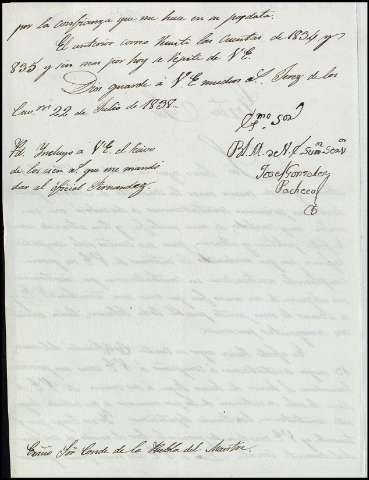 por la confianza que me hace en su propdata.
El anterior correo remití las cuentas de 1834 y
835 y sin mas por hoy se repite de V.E.
Dios guarde á V.E muchos a.s Jerez de los
Cav.os 22 de Julio de 1838.
Exmo Sor
B.L.M. de V.E. su
Jose Gonzalez
Pacheco
Pd. Incluyo a V.E. el recivo
de los cien r.s que me mandó
dar al oficial Fernandez.
Exmo Sor Conde de la Puebla del Maestre.